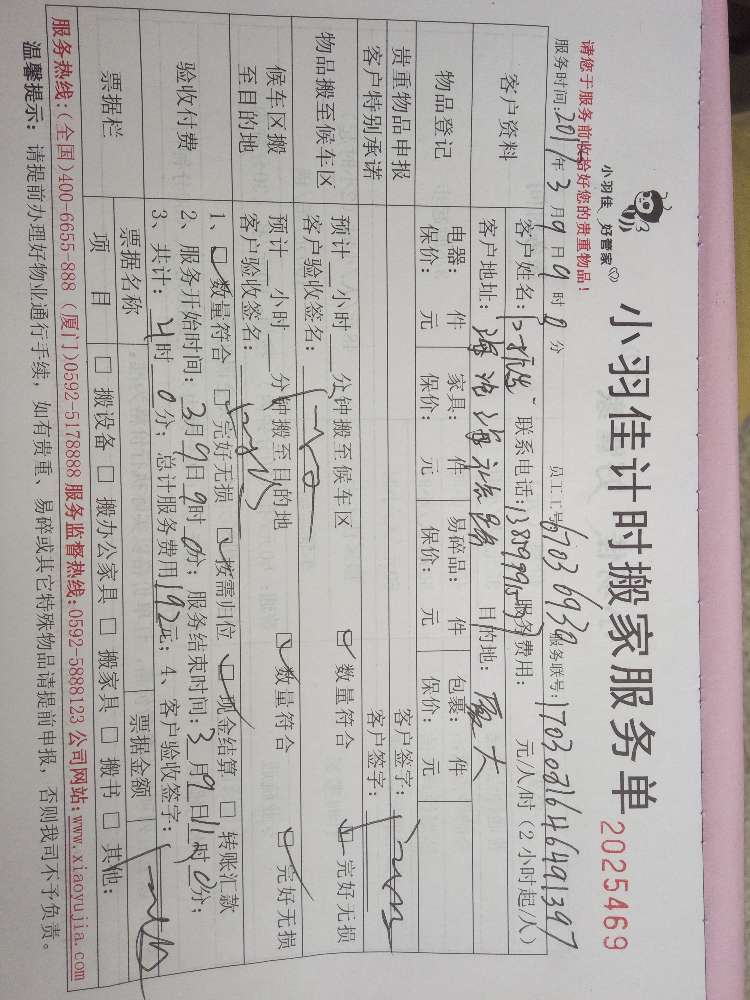 小羽佳 好管家
小羽佳计时搬家服务单
2025469
请您于服务前收拾好您的贵重物品!
员工工号 服务联号:
服务时间:2017年3月9日9时0分
客户资料
客户姓名: 联系电话: 服务费用: 元/人/时(2小时起/人)
客户地址: 目的地:厦大
物品登记
电器: 件 家具: 件 易碎品: 件 包裹: 件
保价: 元 保价: 元 保价: 元 保价: 元
贵重物品申报 客户签字:
客户特别承诺 客户签字:
物品搬至候车区
预计__小时__分钟搬至候车区 ☑数量符合 ☑完好无损
客户验收签名:
候车区搬至目的地
预计__小时__分钟搬至目的地 ☑数量符合 ☑完好无损
客户验收签名:
验收付费
1、☑数量符合 □完好无损 ☑按需归位 ☑现金结算 □转账汇款
2、服务开始时间:3月9日9时0分;服务结束时间:3月9日11时0分;
3、共计: 时0分;总计服务费用192元;4、客户验收签字:
票据栏
票据名称 票据金额
项目 □搬设备 □搬办公家具 □搬家具 □搬书 □其他:
服务热线:(全国)400-6655-888 (厦门)0592-5178888 服务监督热线:0592-5888123 公司网站:www.xiaoyujia.com
温馨提示:请提前办理好物业通行手续,如有贵重、易碎或其它特殊物品请提前申报,否则我司不予负责。